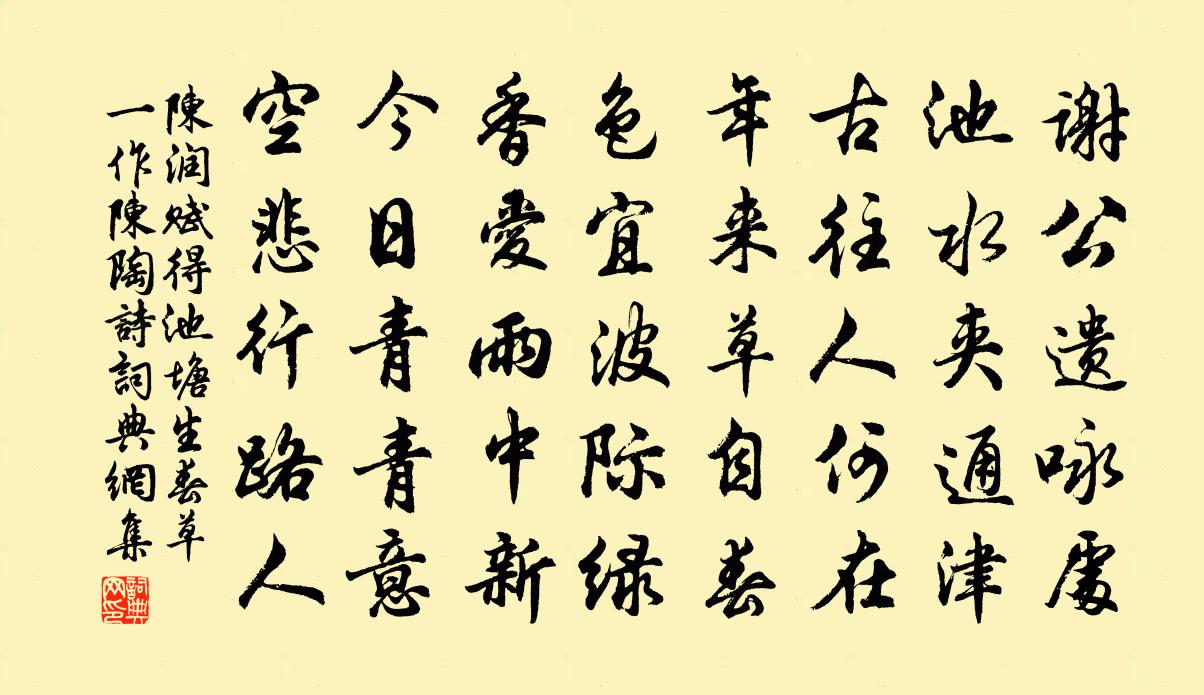 谢公遗咏處
池水夹通津
古往人何在
年来草自春
色宜波际绿
香愛雨中新
今日青青意
空悲行路人
陳润赋得池塘生春草
一作陳陶詩詞典網集
詞典网印